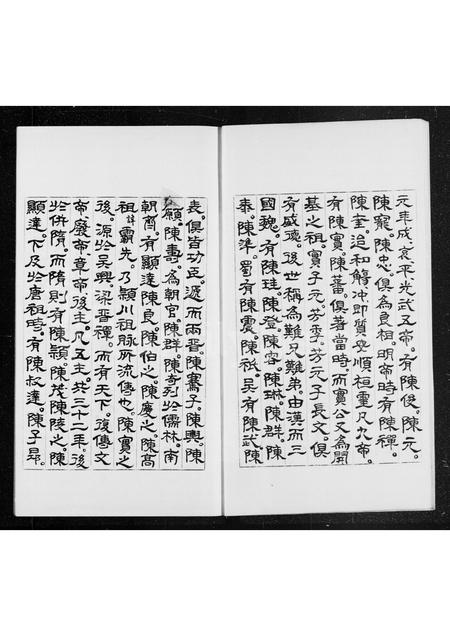 元年成。哀。平。光武五帝。有陳俊。陳元。
陳寵。陳忠。俱為良相。明帝時有陳禪。
陳奎。追和殤。冲。即質。安。順。桓。靈凡九帝。
有陳寔。陳蕃。俱著當時。而寔公又為開
基之祖。寔子元。芳。季。芳元子長文。俱
有盛德。後世稱為難兄難弟。由漢而三
國魏。有陳珪。陳登。陳容。陳琳。陳群。陳
泰。陳準。蜀有陳震。陳祇。吳有陳武。陳
表。俱皆功臣。遞而兩晉。陳騫子。陳輿。陳
頵。陳壽。為朝官。陳群。陳奇列於儒林。南
朝齊。有顯達。陳良。陳伯之。陳慶之。陳高
祖諱霸先。乃潁川祖脉所流傳也。陳寔之
後。源於吳興。梁晋禪。而有天下。復傳文
帝。廢帝。章帝。後主。凡五主。共三十二年。後
於併隋。而隋則有陳潁。陳茂。陳陵之。陳
顯達。下及於唐祖時。有陳叔達。陳子昂。